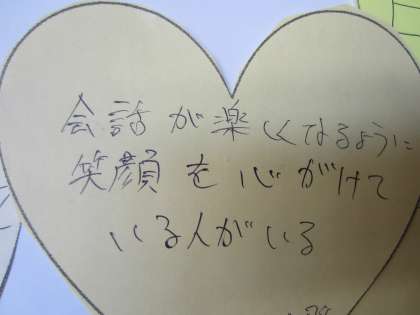 会話が楽しくなるように
笑顔を心がけて
いる人がいる